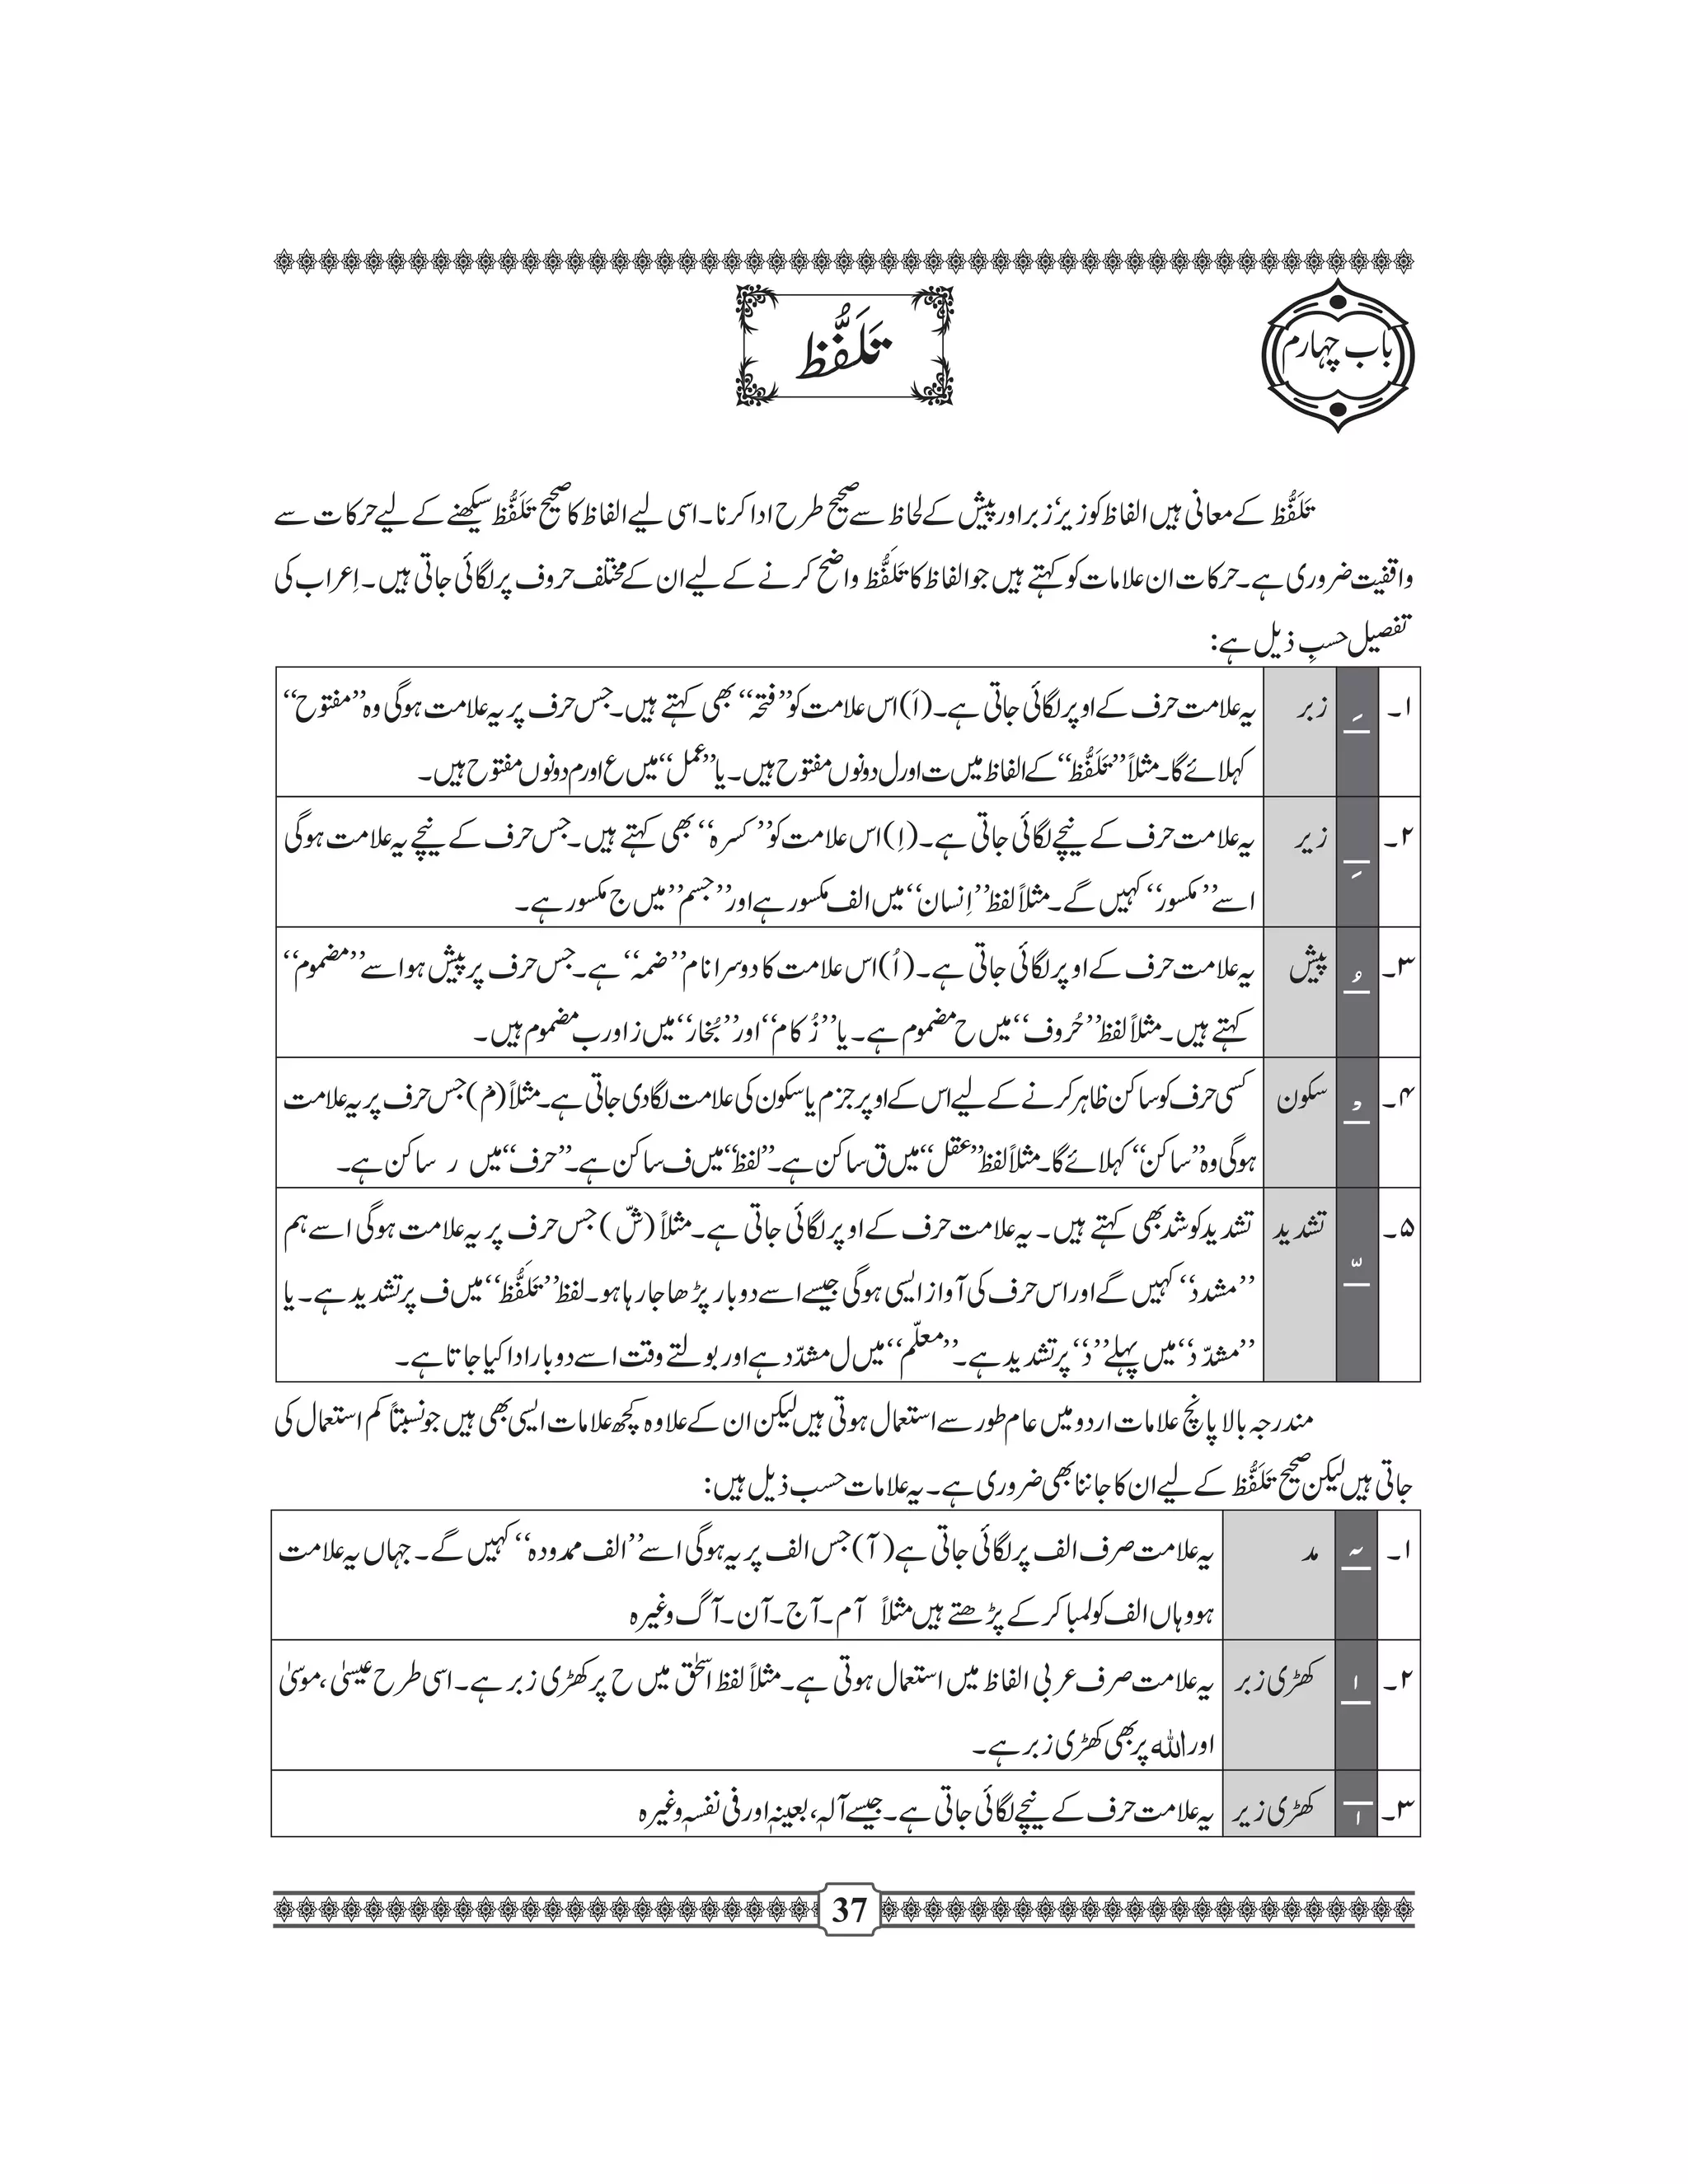 باب چہارم
تَلَفُّظ
تَلَفُّظ کے معانی ہیں الفاظ کو زیر‘ زبر اور پیش کے لحاظ سے صحیح طرح ادا کرنا۔ اسی لیے الفاظ کا صحیح تَلَفُّظ سیکھنے کے لیے حرکات سے
واقفیت ضروری ہے۔ حرکات ان علامات کو کہتے ہیں جو الفاظ کا تَلَفُّظ واضح کرنے کے لیے ان کے مختلف حروف پر لگائی جاتی ہیں۔ اِعراب کی
تفصیل حسبِ ذیل ہے:
۱۔ ـَ زبر یہ علامت حرف کے اوپر لگائی جاتی ہے۔ (اَ) اس علامت کو ’’فتحہ‘‘ بھی کہتے ہیں۔ جس حرف پر یہ علامت ہوگی وہ ’’مفتوح‘‘
کہلائے گا۔ مثلاً ’’تَلَفُّظ‘‘ کے الفاظ میں ت اور ل دونوں مفتوح ہیں۔ یا ’’عمل‘‘ میں ع اور م دونوں مفتوح ہیں۔
۲۔ ـِ زیر یہ علامت حرف کے نیچے لگائی جاتی ہے۔ (اِ) اس علامت کو ’’کسرہ‘‘ بھی کہتے ہیں۔ جس حرف کے نیچے یہ علامت ہوگی
اسے ’’مکسور‘‘ کہیں گے۔ مثلاً لفظ ’’اِنسان‘‘ میں الف مکسور ہے اور ’’جسم‘‘ میں ج مکسور ہے۔
۳۔ ـُ پیش یہ علامت حرف کے اوپر لگائی جاتی ہے۔ (اُ) اس علامت کا دوسرا نام ’’ضمہ‘‘ ہے۔ جس حرف پر پیش ہو اسے ’’مضموم‘‘
کہتے ہیں۔ مثلاً لفظ ’’حُروف‘‘ میں ح مضموم ہے۔ یا ’’زُکام‘‘ اور ’’بُخار‘‘ میں ز اور ب مضموم ہیں۔
۴۔ ـْ سکون کسی حرف کو ساکن ظاہر کرنے کے لیے اس کے اوپر جزم یا سکون کی علامت لگا دی جاتی ہے۔ مثلاً (مْ) جس حرف پر یہ علامت
ہوگی وہ ’’ساکن‘‘ کہلائے گا۔ مثلاً لفظ ’’عقل‘‘ میں ق ساکن ہے۔ ’’لفظ‘‘ میں ف ساکن ہے۔ ’’حرف‘‘ میں ر ساکن ہے۔
۵۔ ـّ تشدید تشدید کو شد بھی کہتے ہیں۔ یہ علامت حرف کے اوپر لگائی جاتی ہے۔ مثلاً (شّ) جس حرف پر یہ علامت ہوگی اسے ہم
’’مشدد‘‘ کہیں گے اور اس حرف کی آواز ایسی ہوگی جیسے اسے دوبار پڑھا جا رہا ہو۔ لفظ ’’تَلَفُّظ‘‘ میں ف پر تشدید ہے۔ یا
’’مشدّد‘‘ میں پہلے ’’د‘‘ پر تشدید ہے۔ ’’معلّم‘‘ میں ل مشدّد ہے اور بولتے وقت اسے دوبار ادا کیا جاتا ہے۔
مندرجہ بالا پانچ علامات اردو میں عام طور سے استعمال ہوتی ہیں لیکن ان کے علاوہ کچھ علامات ایسی بھی ہیں جو نسبتاً کم استعمال کی
جاتی ہیں لیکن صحیح تَلَفُّظ کے لیے ان کا جاننا بھی ضروری ہے۔ یہ علامات حسب ذیل ہیں:
۱۔ ـٓ مد یہ علامت صرف الف پر لگائی جاتی ہے (آ) جس الف پر یہ ہوگی اسے ’’الف ممدودہ‘‘ کہیں گے۔ جہاں یہ علامت
ہو وہاں الف کو لمبا کر کے پڑھتے ہیں مثلاً آم۔ آج۔ آن۔ آگ وغیرہ
۲۔ ـٰ کھڑی زبر یہ علامت صرف عربی الفاظ میں استعمال ہوتی ہے۔ مثلاً لفظ اسحٰق میں ح پر کھڑی زبر ہے۔ اسی طرح عیسیٰ، موسیٰ
اور اللہ پر بھی کھڑی زبر ہے۔
۳۔ ـٖ کھڑی زیر یہ علامت حرف کے نیچے لگائی جاتی ہے۔ جیسے آلہٖ، بعینہٖ اور فی نفسہٖ وغیرہ
37